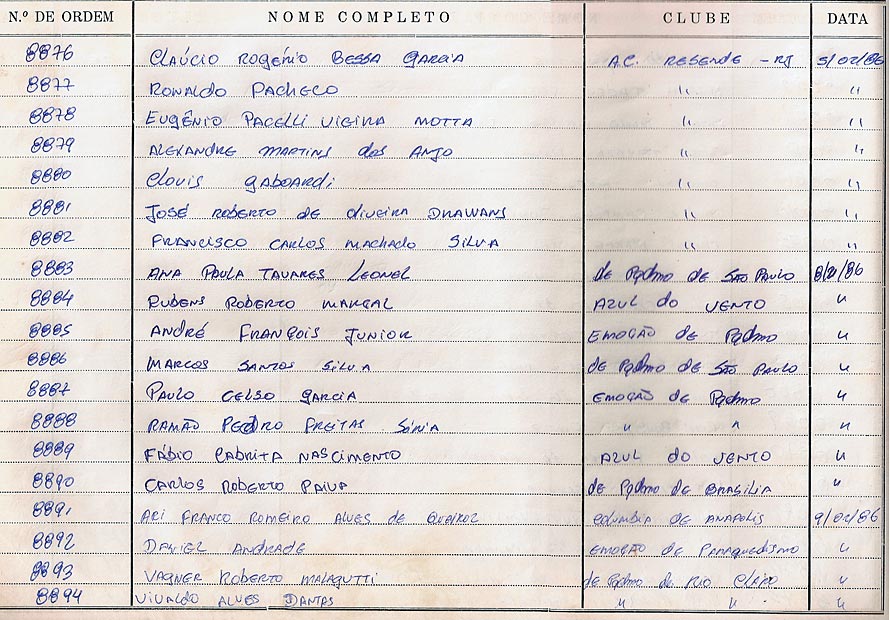 N.º DE ORDEM NOME COMPLETO CLUBE DATA
8876 CLAÚCIO ROGÉRIO BESSA GARCIA A.C. RESENDE - RJ 5/02/86
8877 RONALDO PACHECO " "
8878 EUGÊNIO PACELLI VIEIRA MOTTA " "
8879 ALEXANDRE MARTINS dos ANJO " "
8880 CLOVIS GABOARDI " "
8881 JOSÉ ROBERTO DE OLIVEIRA DRAWANS " "
8882 FRANCISCO CARLOS MACHADO SILVA " "
8883 ANA PAULA TAVARES LEONEL de Pqdmo DE SÃO PAULO 8/2/86
8884 RUBENS ROBERTO MARÇAL AZUL do VENTO "
8885 ANDRÉ FRANÇOIS JUNIOR EMOÇÃO de Pqdmo "
8886 MARCOS SANTOS SILVA de Pqdmo de SÃO PAULO "
8887 PAULO CELSO GARCIA EMOÇÃO de Pqdmo "
8888 RAMÃO PEDRO FREITAS " " "
8889 FÁBIO CABRITA NASCIMENTO AZUL do VENTO "
8890 CARLOS ROBERTO PAIVA de Pqdmo de BRASILIA "
8891 ARI FRANCO ROMEIRO ALVES de QUEIROZ COLUMBIA DE ANAPOLIS 9/02/86
8892 DANIEL ANDRADE EMOÇÃO de PARAQUEDISMO "
8893 VAGNER ROBERTO MALAGUTTI de Pqdmo de RIO CLARO "
8894 VIVALDO ALVES DANTAS " " "